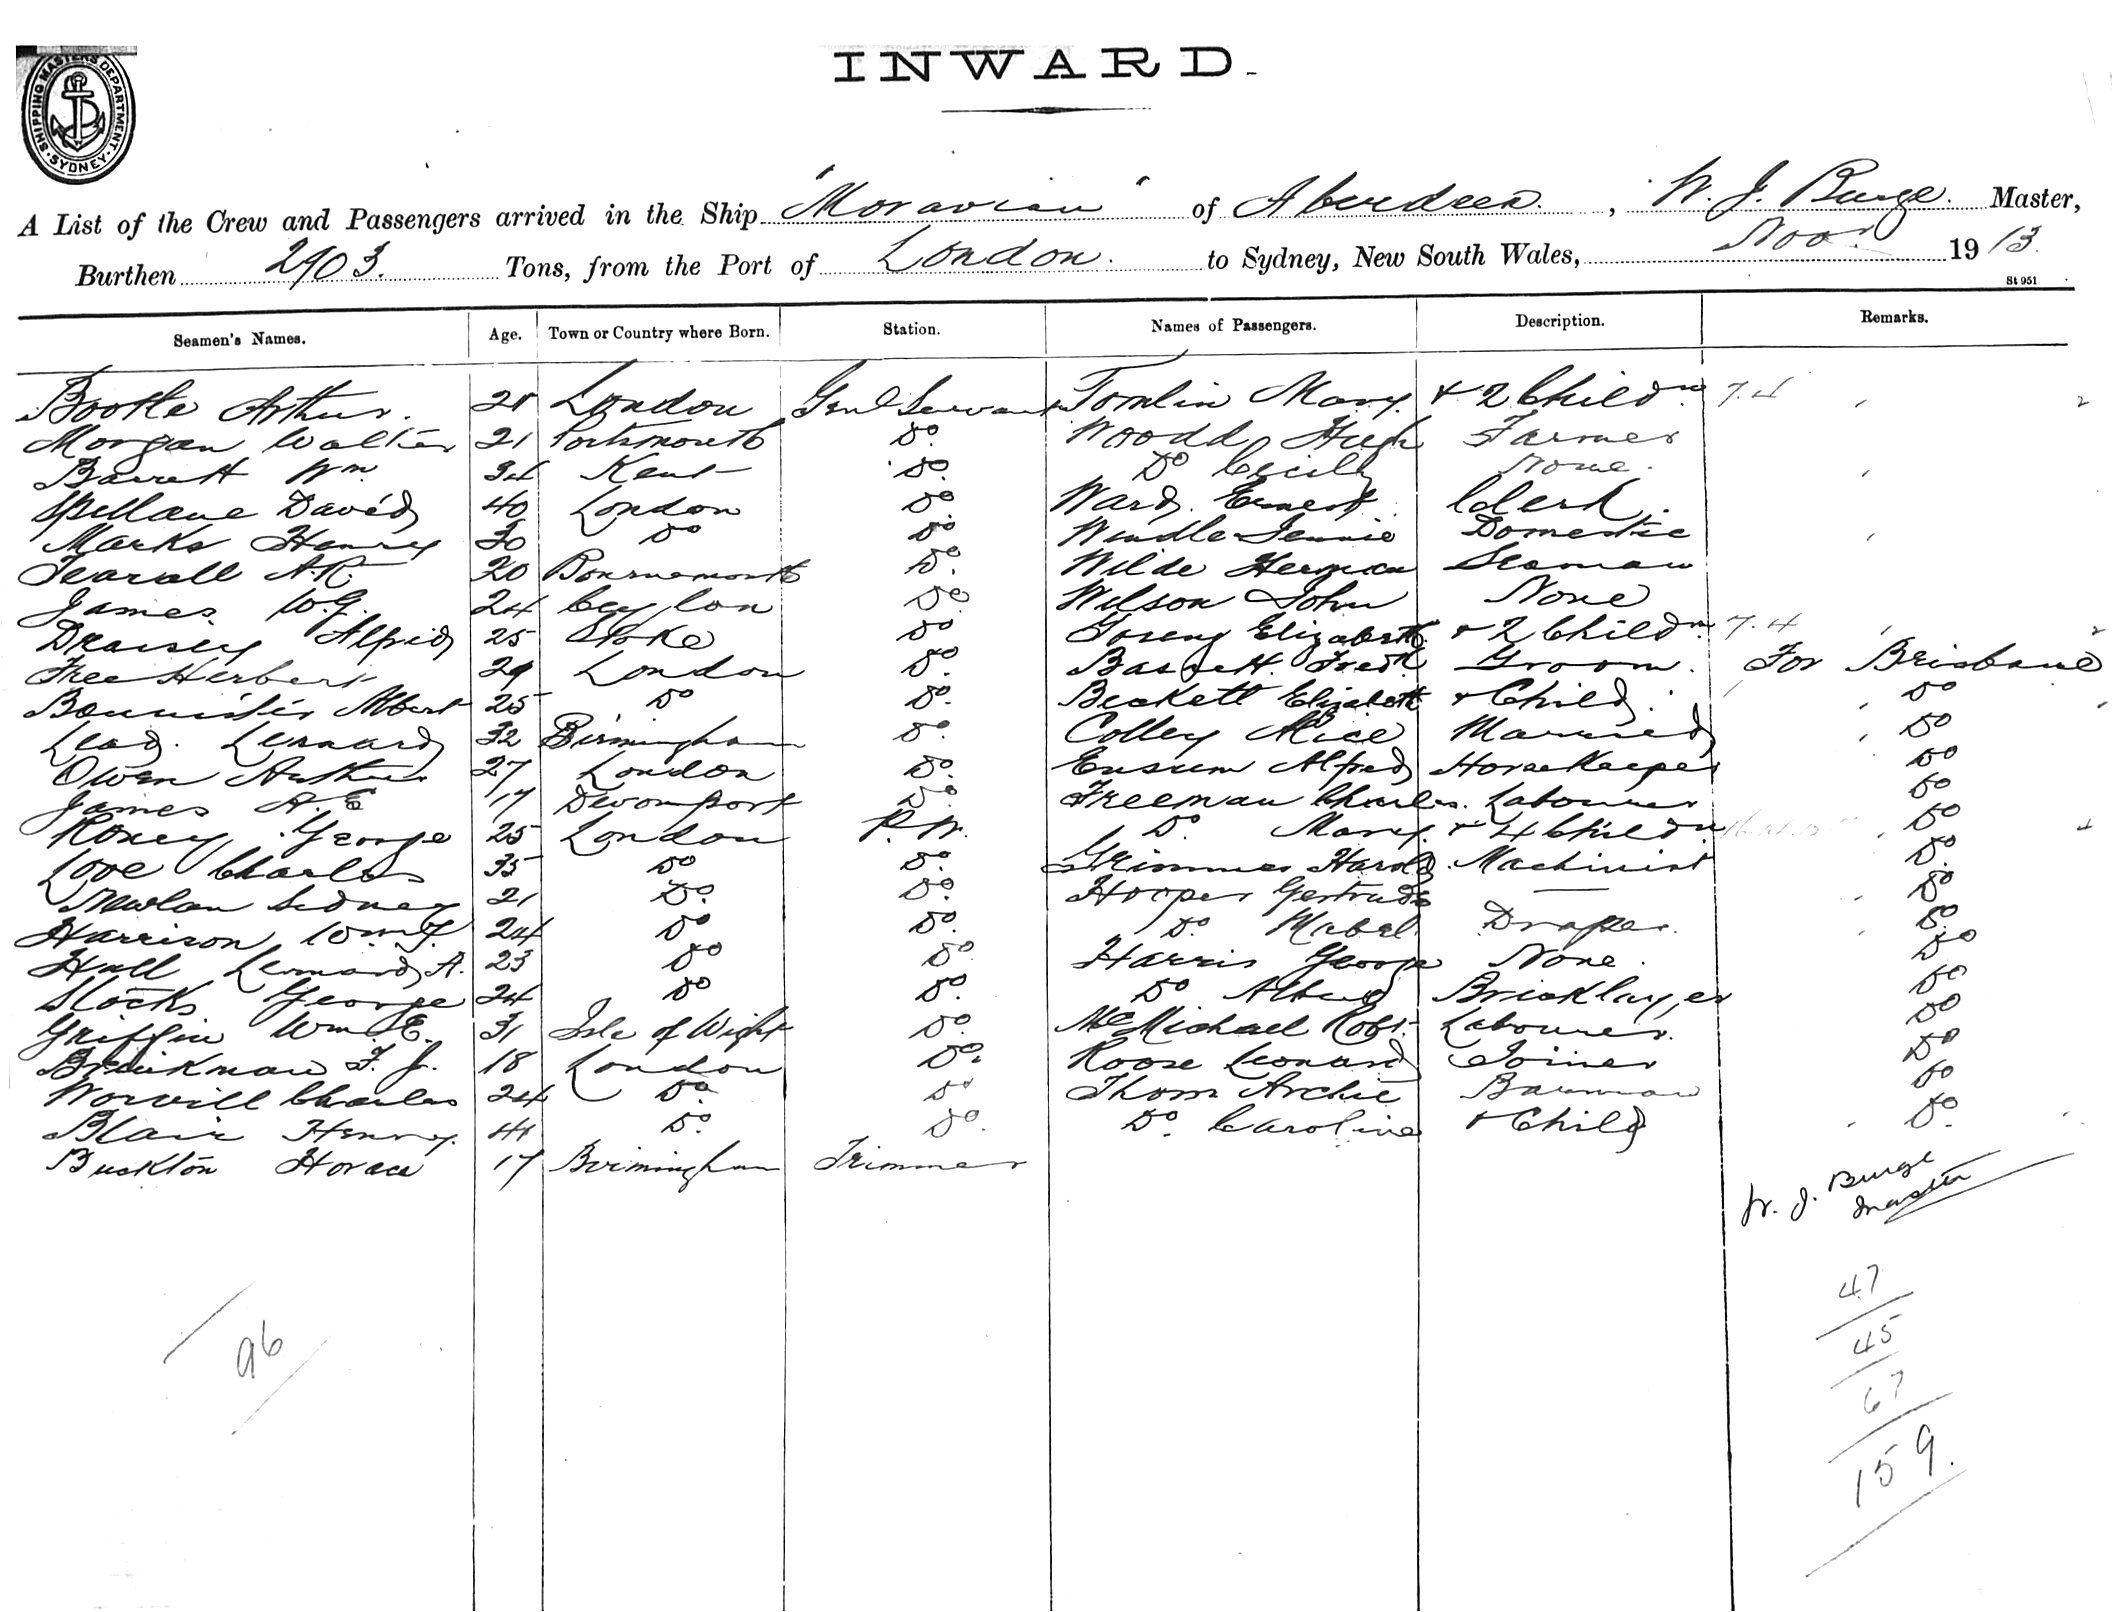 SHIPPING MASTERS DEPARTMENT. SYDNEY.
INWARD.
A List of the Crew and Passengers arrived in the Ship "Moravian" of Aberdeen, W. J. Burge. Master,
Burthen 2903. Tons, from the Port of London. to Sydney, New South Wales, Novr 1913.
St 951
Seamen's Names. Age. Town or Country where Born. Station. Names of Passengers. Description. Remarks.
Bootle Arthur. London Genl Servant Tomlin Mary. + 2 Childrn 7.4
Morgan Walter 21 Portsmouth Do. Woodd Hugh Farmer
Barrett Wm. 34 Kent Do. Do Cicily None.
Spellane David 40 London Do. Ward. Ernest. Clerk.
Marks Henry 30 Do Do Windle Jennie Domestic
A.R. 20 Bournemouth Do. Wilde Herman Seaman
James W.G. 24 Ceylon Do Wilson John None
Alfrid 25 Stoke Do Elizabeth + 2 Childrn 7.4
Free Herbert 29 London Do. Bassett. Fredk Groom. For Brisbane
Bannister Albert 25 Do Do. Beckett Elizabeth + Child. Do
Lead. Lennard 32 Birmingham Do. Colley Alice Married Do
Owen Arthur 27 London Do. Ensum Alfred Horsekeeper Do
James A.E 17 Devonport Do. Freeman Charles. Labourer Do
Roney George 25 London P.W. Do. Mary. + 4 Childrn Do
Love Charles 35 Do Do. Grimmer Harold Machinist Do.
Newlan Sidney 21 Do. Do. Hooper Gertrude — Do
Harrison Wm G. 24 Do Do. Do. Mabel. Draper. Do.
Hull Lennard A. 23 Do Do. Harris George None. Do
Stocks George 24 Do Do. Do Albert Bricklayer Do
Griffin Wm E. 31 Isle of Wight Do. McMichael Robt. Labourer. Do
Brinkman F. J. 18 London Do. Roose Leonard Joiner Do
Worvill Charles 24 Do. Do Thom Archie Barman Do
Blair Henry. 44 Do. Do. Do. Caroline + Child Do.
Buckton Horace 17 Birmingham Trimmer
W. J. Burge
Master
47
45
96
67
159.